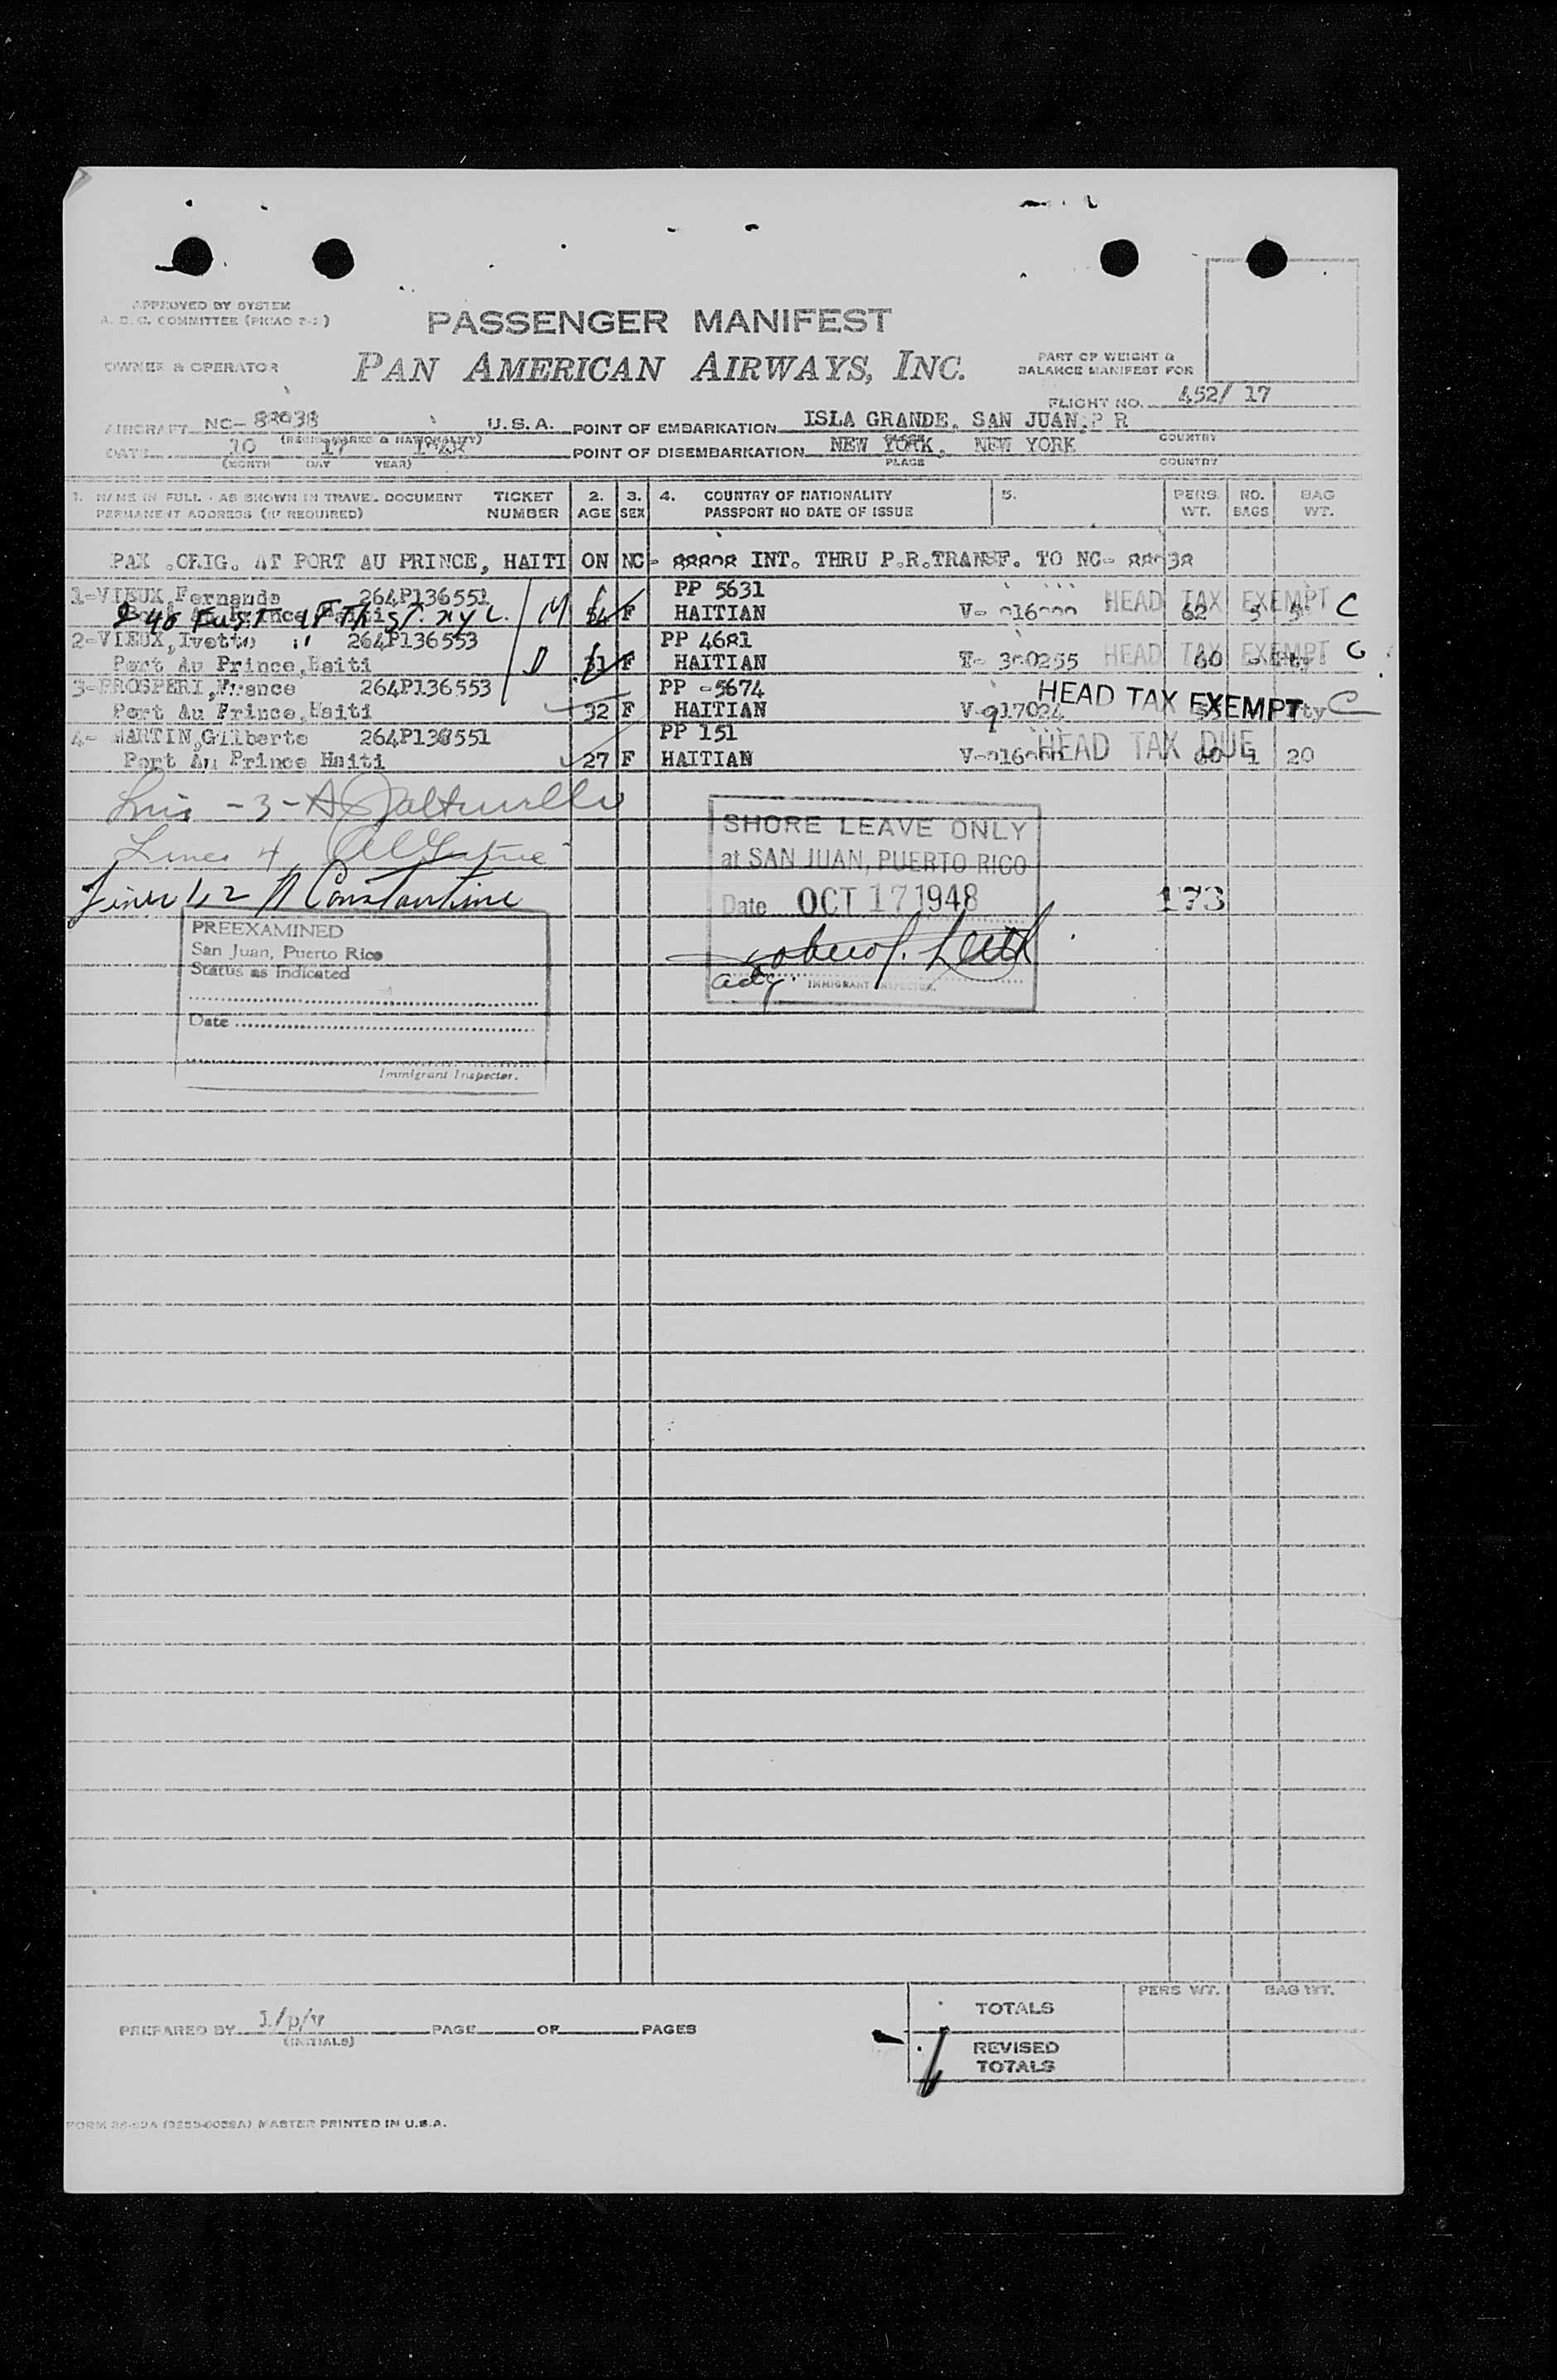 APPROVED BY SYSTEM
A. D. C. COMMITTEE (PICAO 2-2)
PASSENGER MANIFEST
OWNER & OPERATOR PAN AMERICAN AIRWAYS, INC.
PART OF WEIGHT &
BALANCE MANIFEST FOR
FLIGHT NO. 452/ 17
AIRCRAFT NC- 88938 U. S. A. POINT OF EMBARKATION ISLA GRANDE, SAN JUAN, P R
(REGIS. MARKS & NATIONALITY) COUNTRY
DATE 10 17 1948 POINT OF DISEMBARKATION NEW YORK, NEW YORK
(MONTH DAY YEAR) PLACE COUNTRY
1. NAME IN FULL - AS SHOWN IN TRAVEL DOCUMENT TICKET 2. 3. 4. COUNTRY OF NATIONALITY 5. PERS. NO. BAG
PERMANENT ADDRESS (IF REQUIRED) NUMBER AGE SEX PASSPORT NO DATE OF ISSUE WT. BAGS WT.
PAX .ORIG. AT PORT AU PRINCE, HAITI ON NC- INT. THRU P.R.TRANSF. TO NC- 88938
1-VIEUX,Fernande 264P136551 PP 5631
HAITIAN HEAD TAX EXEMPT 62 C
2-VIEUX,Ivette 264P136553 PP 4681
Port Au Prince,Haiti 31 F HAITIAN HEAD TAX EXEMPT 60
3-PROSPERI,France 264P136553 PP -5674
Port Au Prince,Haiti 32 F HAITIAN V-917024 HEAD TAX EXEMPT C
4- MARTIN,Gilberte 264P136551 PP 151
Port Au Prince Haiti 27 F HAITIAN HEAD TAX DUE 60 1 20
Lines 4
Lines 1,2 A Constantine
173
SHORE LEAVE ONLY
at SAN JUAN, PUERTO RICO
Date OCT 17 1948
IMMIGRANT INSPECTOR.
PREEXAMINED
San Juan, Puerto Rico
Status as indicated
Date
Immigrant Inspector.
PERS WT. BAG WT.
TOTALS
PREPARED BY PAGE OF PAGES
(INITIALS)
REVISED
TOTALS
MASTER PRINTED IN U.S.A.